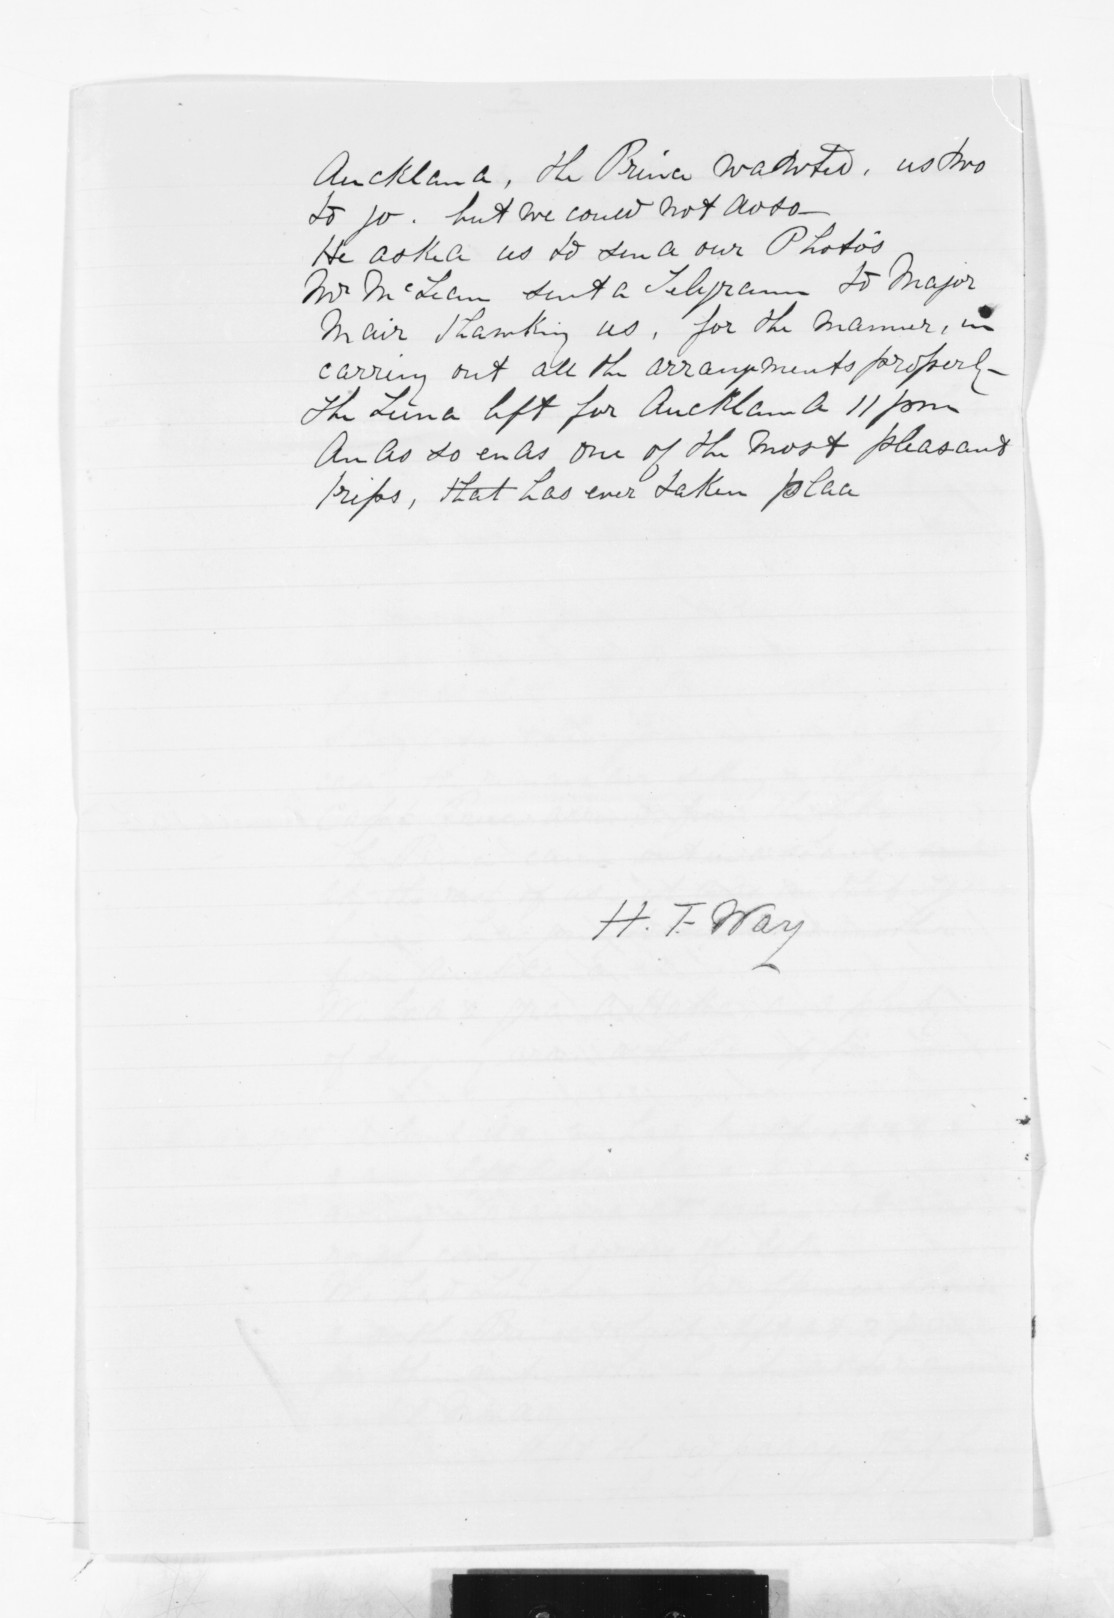 Auckland, the Prince wanted, us two
to go. but we could not do so—
He asked us to send our Photo's
Mr McLean sent a Telegram to Major
Mair thanking us, for the manner, in
carring out all the arrangments properly—
the Luna left for Auckland 11 pm
And so ends one of the most pleasant
trips, that has ever taken place
H. T. Way